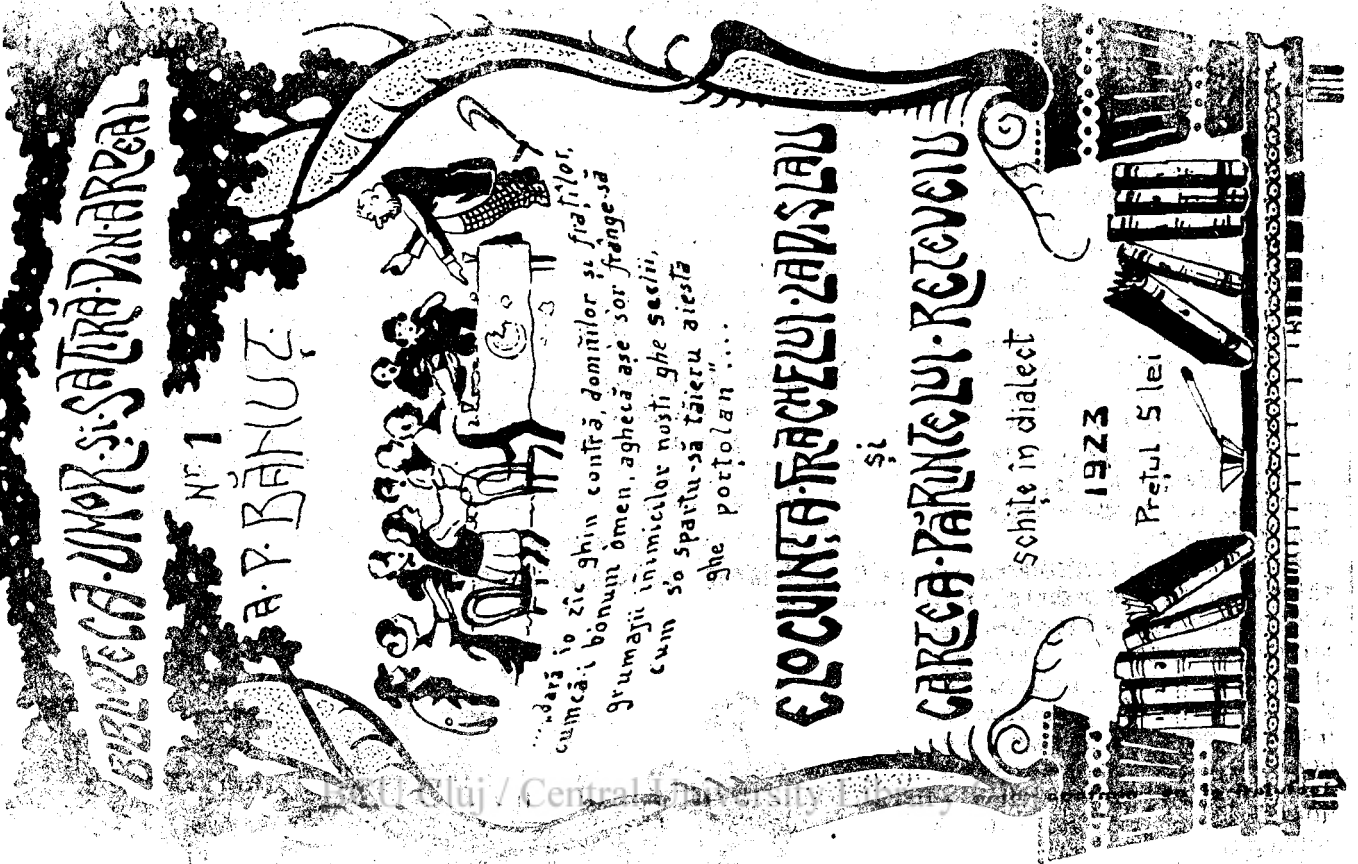 BIBLIOTECA·UMOR·ȘI·SATIRĂ·DIN·ARDEAL
Nr. 1
A·P·BĂNUȚ
...„dară io zîc ghin contră, domńilor și fraților,
cumcă-i bonum omen, aghecă așe s'or frânge-să
grumajii ińimicilor noșți ghe seclii,
cum s'o spartu-să tăieru aiesta
ghe porțolan"....
ELOCVINȚA·FRACHELUI·LADISLAU
și
CARTEA·PĂRINTELUI·RETEVEIU
schițe în dialect
1923
Prețul 5 lei
BCU Cluj / Central University Library Cluj